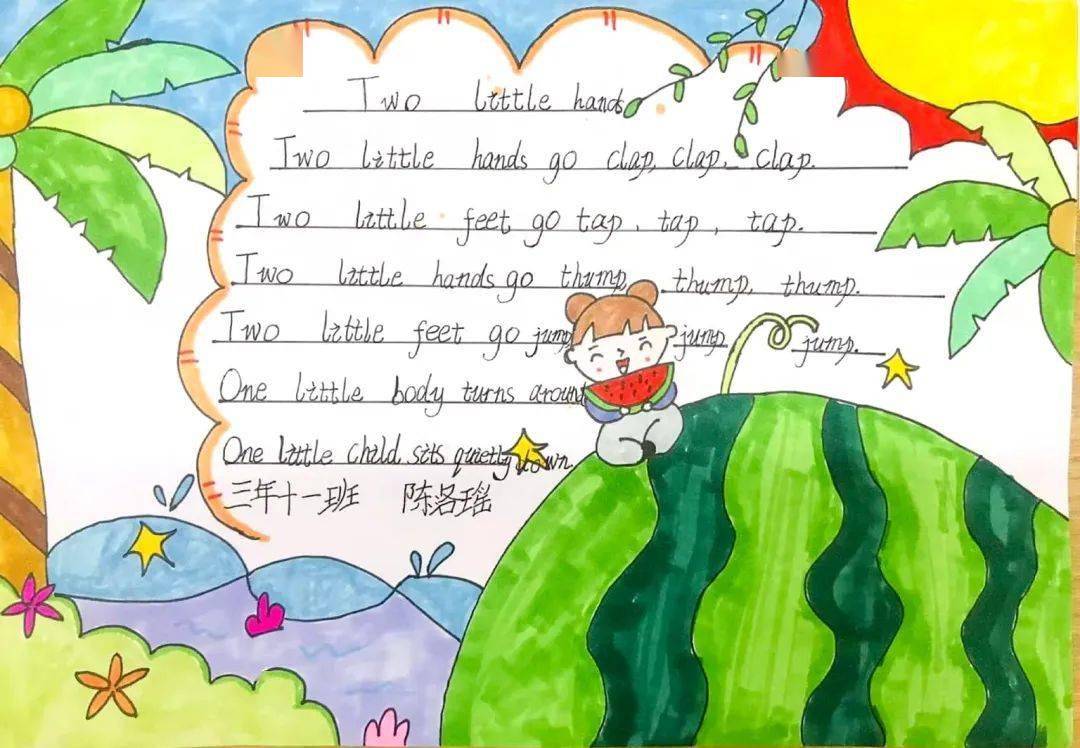 Two little hands
Two little hands go clap, clap, clap.
Two little feet go tap, tap, tap.
Two little hands go thump, thump, thump.
Two little feet go jump, jump, jump.
One little body turns around
One little child sits quietly down
三年十一班 陈洛瑶